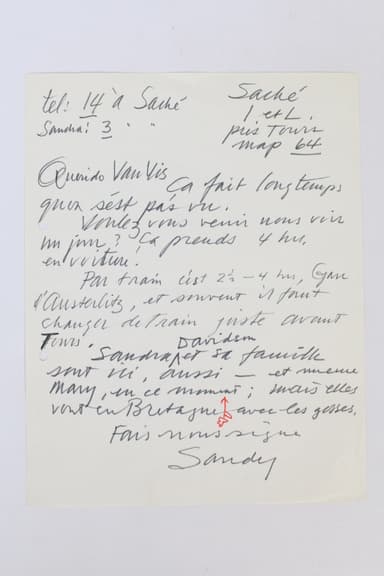 tel: 14 à Saché
Sandra: 3 " "
Saché
I et L.
près Tours
map 64
Querido VanVis
Ça fait longtemps
qu'on s'est pas vu.
Voulez vous venir nous voir
un jour? Ça prends 4 hrs.
en voiture!
Par train c'est 2½ – 4 hrs, Gare
d'Austerlitz, et souvent il faut
changer de train juste avant
Tours.
Davidson
Sandra et sa famille
sont ici, aussi – et meme
Mary, en ce moment; mais elles
vont en Bretagne avec les gosses.
Fais nous signe
Sandy